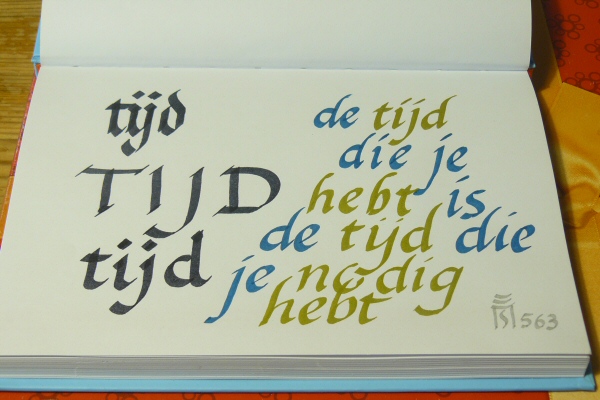 tijd
TIJD
tijd
de tijd
die je
hebt is
de tijd die
je nodig
hebt
563